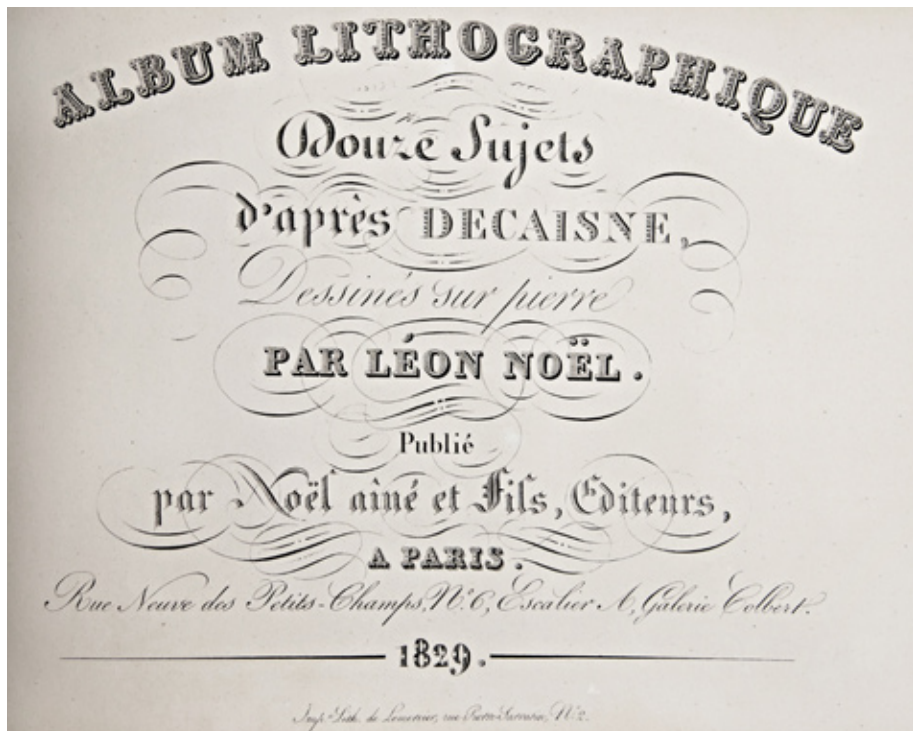 ALBUM LITHOGRAPHIQUE
Douze Sujets
d'après DECAISNE,
Dessinés sur pierre
PAR LÉON NOËL.
Publié
par Noël aîné et Fils, Editeurs,
A PARIS.
Rue Neuve des Petits-Champs, N° 6, Escalier A, Galerie Colbert.
1829.
Imp. Lith. de Lemercier, rue Pierre Sarrazin, N° 2.